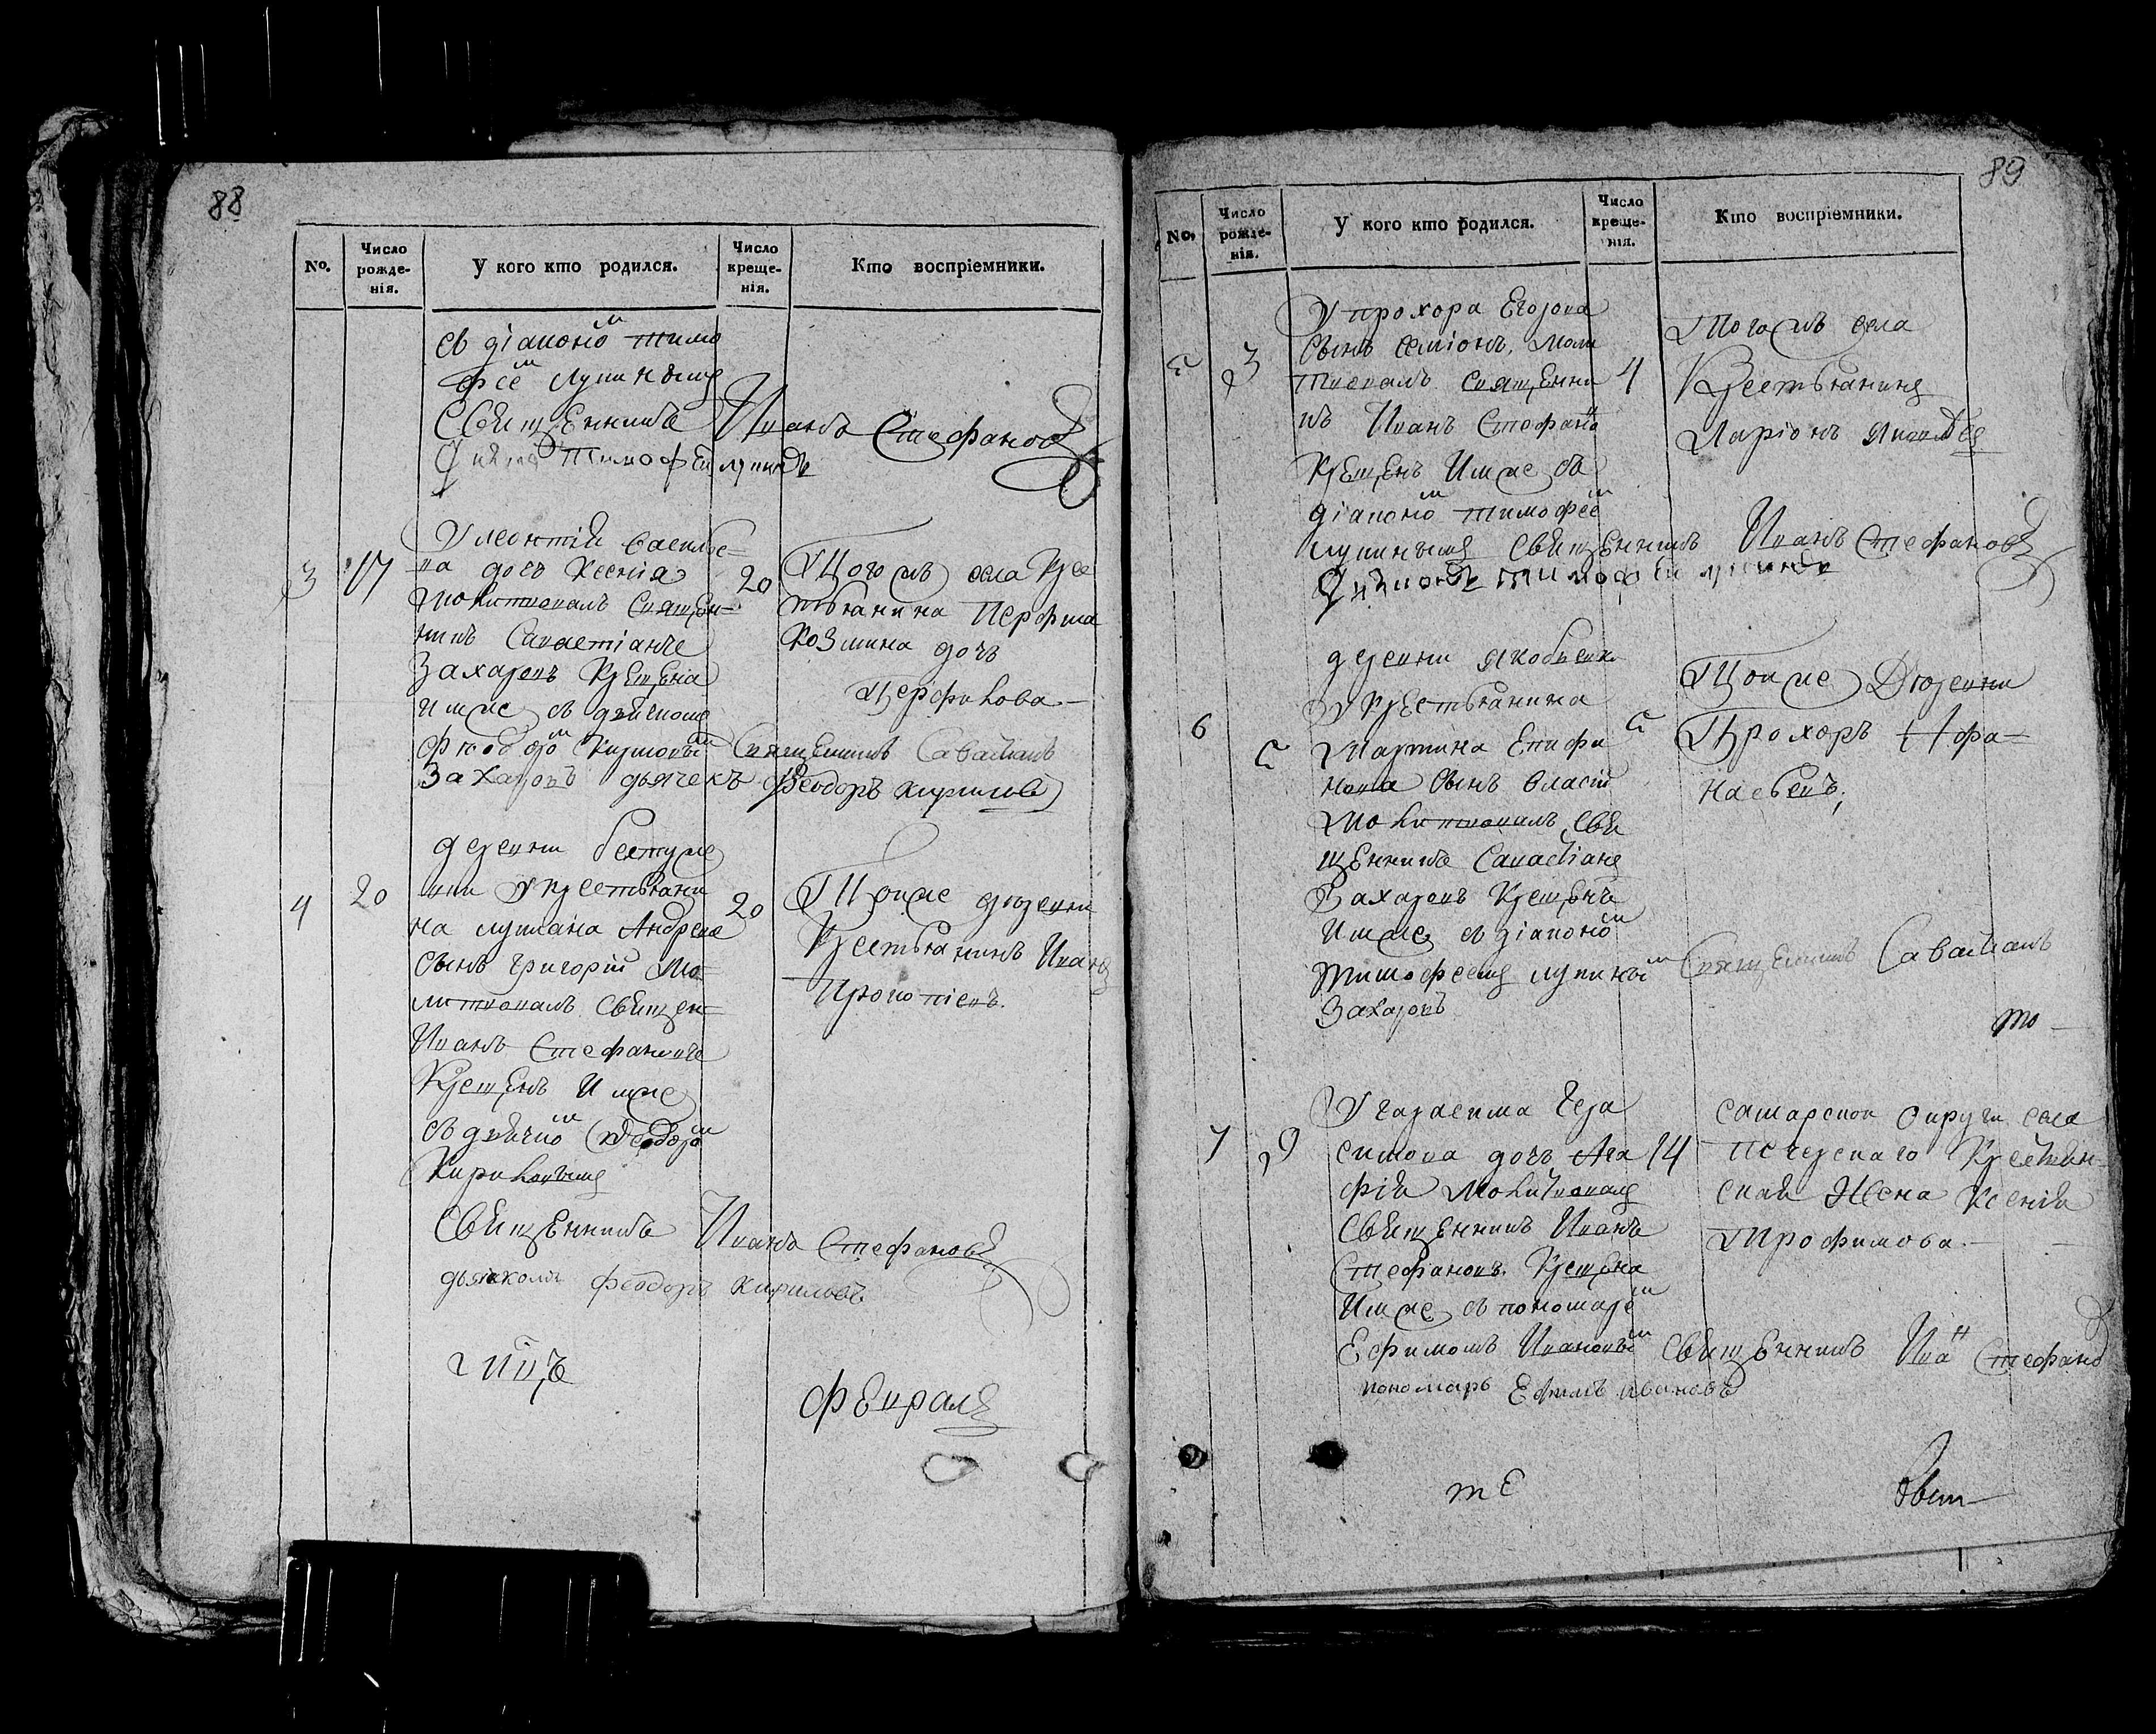 88
No.
Число рожденія.
У кого кто родился.
Число крещенія.
Кто воспріемники.
съ діаконо͞м Тимо
фее͞м Лупинымъ
Священникъ Иванъ Стефановъ
Тимофей Лупинъ
3
17
У Леонтія Василье=
ва дочь Ксенія
молитвовалъ священ=
никъ Савастіанъ
Захаровъ Крещена
имже съ дьячкомъ
Фіодоро͞м Кириловы͞м
20
Тогожъ села Крес
тьянина Перфила
Козмина дочь
Перфилова.
Священникъ Саватіанъ
Захаровъ дьячекъ Феодоръ Кириловъ
4
20
деревни Бестуже
вки У крестьяни
на Лукіана Андреева
сынъ Григорій Мо=
литвовалъ священ=
Иванъ Стефановъ
Крещенъ Имже
съ дьячко͞м Феодоро͞м
Кириловымъ
20
Тоиже деревни
Крестьянинъ Иванъ
Прокопіевъ.
Священникъ Иванъ Стефановъ
дьячекъ Феодоръ Кириловъ
Февраля
89
No.
Число рожденія.
У кого кто родился.
Число крещенія.
Кто воспріемники.
5
3
У Прохора Егорова
сынъ Семіонъ, Моли
твовалъ священни
къ Иванъ Стефано
Крещенъ Имже съ
діаконо͞м Тимофее͞м
Лупинымъ Священникъ Иванъ Стефановъ
Діаконъ Тимофей Лупинъ
4
Тогожъ села
Крестьянинъ
Ларіонъ Яковлевъ
6
5
деревни Якобьевк
У Крестьянина
Мартина Епифа
нова сынъ Власій
Молитвовалъ Свя
щенникъ Савастіанъ
Захаровъ Крещенъ
Имже съ діаконо͞м
Тимофеемъ Лупины͞м Священникъ Саватіанъ
Захаровъ
5
Тоиже Деревни
Прохоръ Афа-
насьевъ;
то-
7
9
У Гарасима Гера
симова дочь Ага
фія Молитвовалъ
Священникъ Иванъ
Стефановъ. Крещена
Имже съ пономаре͞м
Ефимомъ Ивановы͞м Священникъ Ива͞н Стефано
пономарь Ефимъ Ивановъ
14
Самарской округи села
Печерскаго Крестьян-
ская Жена Ксенія
Трофимова.-
те